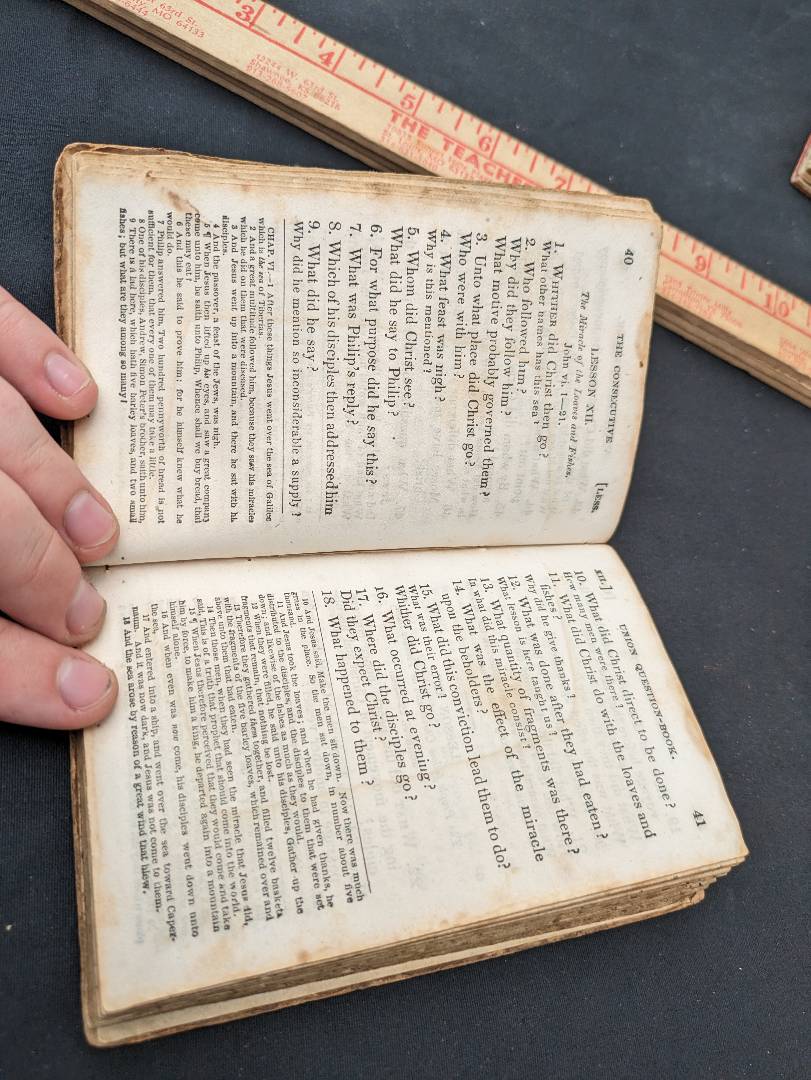 40 THE CONSECUTIVE [LESS.
LESSON XII.
The Miracle of the Loaves and Fishes.
John vi. 1—21.
1. WHITHER did Christ then go?
What other names has this sea?
2. Who followed him?
Why did they follow him?
What motive probably governed them?
3. Unto what place did Christ go?
Who were with him?
4. What feast was nigh?
Why is this mentioned?
5. Whom did Christ see?
What did he say to Philip?
6. For what purpose did he say this?
7. What was Philip's reply?
8. Which of his disciples then addressed him
9. What did he say?
Why did he mention so inconsiderable a supply?
CHAP. VI.—1 After these things Jesus went over the sea of Galilee
which is the sea of Tiberias.
2 And a great multitude followed him, because they saw his miracles
which he did on them that were diseased.
3 And Jesus went up into a mountain, and there he sat with his
disciples.
4 And the passover, a feast of the Jews, was nigh.
5 ¶ When Jesus then lifted up his eyes, and saw a great company
come unto him, he saith unto Philip, Whence shall we buy bread, that
these may eat?
6 And this he said to prove him: for he himself knew what he
would do.
7 Philip answered him, Two hundred pennyworth of bread is not
sufficient for them, that every one of them may take a little.
8 One of his disciples, Andrew, Simon Peter's brother, saith unto him,
9 There is a lad here, which hath five barley loaves, and two small
fishes; but what are they among so many?
XII.] UNION QUESTION-BOOK. 41
10. What did Christ direct to be done?
How many men were there?
11. What did Christ do with the loaves and
fishes?
Why did he give thanks?
12. What was done after they had eaten?
What lesson is here taught us?
13. What quantity of fragments was there?
In what did this miracle consist?
14. What was the effect of the miracle
upon the beholders?
15. What did this conviction lead them to do?
What was their error?
Whither did Christ go?
16. What occurred at evening?
Where did the disciples go?
17. Where did they expect Christ?
18. What happened to them?
10 And Jesus said, Make the men sit down. Now there was much
grass in the place. So the men sat down, in number about five
thousand.
11 And Jesus took the loaves; and when he had given thanks, he
distributed to the disciples, and the disciples to them that were set
down; and likewise of the fishes as much as they would.
12 When they were filled he said unto his disciples, Gather up the
fragments that remain, that nothing be lost.
13 Therefore they gathered them together, and filled twelve baskets
with the fragments of the five barley loaves, which remained over and
above unto them that had eaten.
14 Then those men, when they had seen the miracle that Jesus did,
said, This is of a truth that prophet that should come into the world.
15 ¶ When Jesus therefore perceived that they would come and take
him by force, to make him a king, he departed again into a mountain
himself alone.
16 And when even was now come, his disciples went down unto
the sea,
17 And entered into a ship, and went over the sea toward Caper-
naum. And it was now dark, and Jesus was not come to them.
18 And the sea arose by reason of a great wind that blew.
3 4 5 6 7 9 10
63rd St.
MO 64133
12244 W. 63rd St.
Shawnee, KS 66216
THE TEACHE